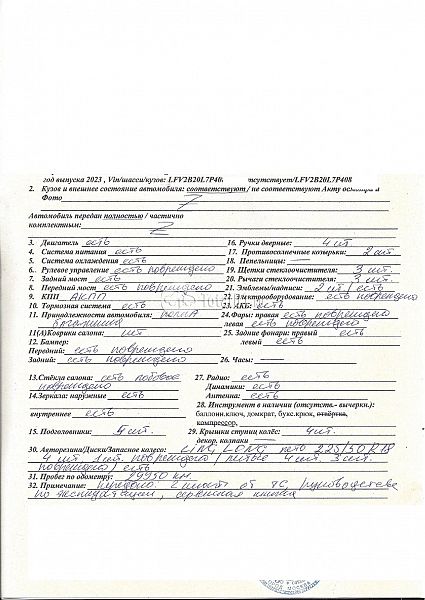 год выпуска 2023 , Vin/шасси/кузов: LFV2B20L7P40. тсутствует/LFV2B20L7P408
2. Кузов и внешнее состояние автомобиля: соответствуют / не соответствуют Акту
Фото
Автомобиль передан полностью / частично
комплектным: Z
3. Двигатель есть 16. Ручки дверные: 4 шт.
4. Система питания есть 17. Противосолнечные козырьки: 2 шт
5. Система охлаждения есть 18. Пепельницы: —
6. Рулевое управление есть повреждено 19. Щетки стеклоочистителя: 3 шт.
7. Задний мост есть 20. Рычаги стеклоочистителя: 3 шт.
8. Передний мост есть повреждено 21. Эмблемы/надписи: 2 шт / есть
9. КПП АКПП 22. Электрооборудование: есть повреждено
10. Тормозная система есть 23. АКБ: есть
11. Принадлежности автомобиля: 24.Фары: правая есть повреждено
левая есть повреждено
11(А)Коврики салона: шт 25. Задние фонари: правый есть
12. Бампер: левый есть
Передний: есть повреждено
Задний: есть повреждено 26. Часы: —
13.Стёкла салона: есть лобовое 27. Радио: есть
повреждено Динамики: есть
14.Зеркала: наружные есть Антенна: есть
28. Инструмент в наличии (отсутств.- вычерки.):
внутреннее есть баллонн.ключ, домкрат, букс.крюк, отвёртка,
компрессор,
15. Подголовники: 4 шт. 29. Крышки ступиц колёс: 4 шт.
декор. колпаки —
30. Авторезина/Диски/Запасное колесо: LING LONG лето 225/50 R18
4 шт. 1 шт. повреждено / литые 4 шт. 3 шт.
повреждено / есть
31. Пробег по одометру: 29950 км.
32. Примечание: 2 от ТС, руководство
по эксплуатации, сервисная книжка